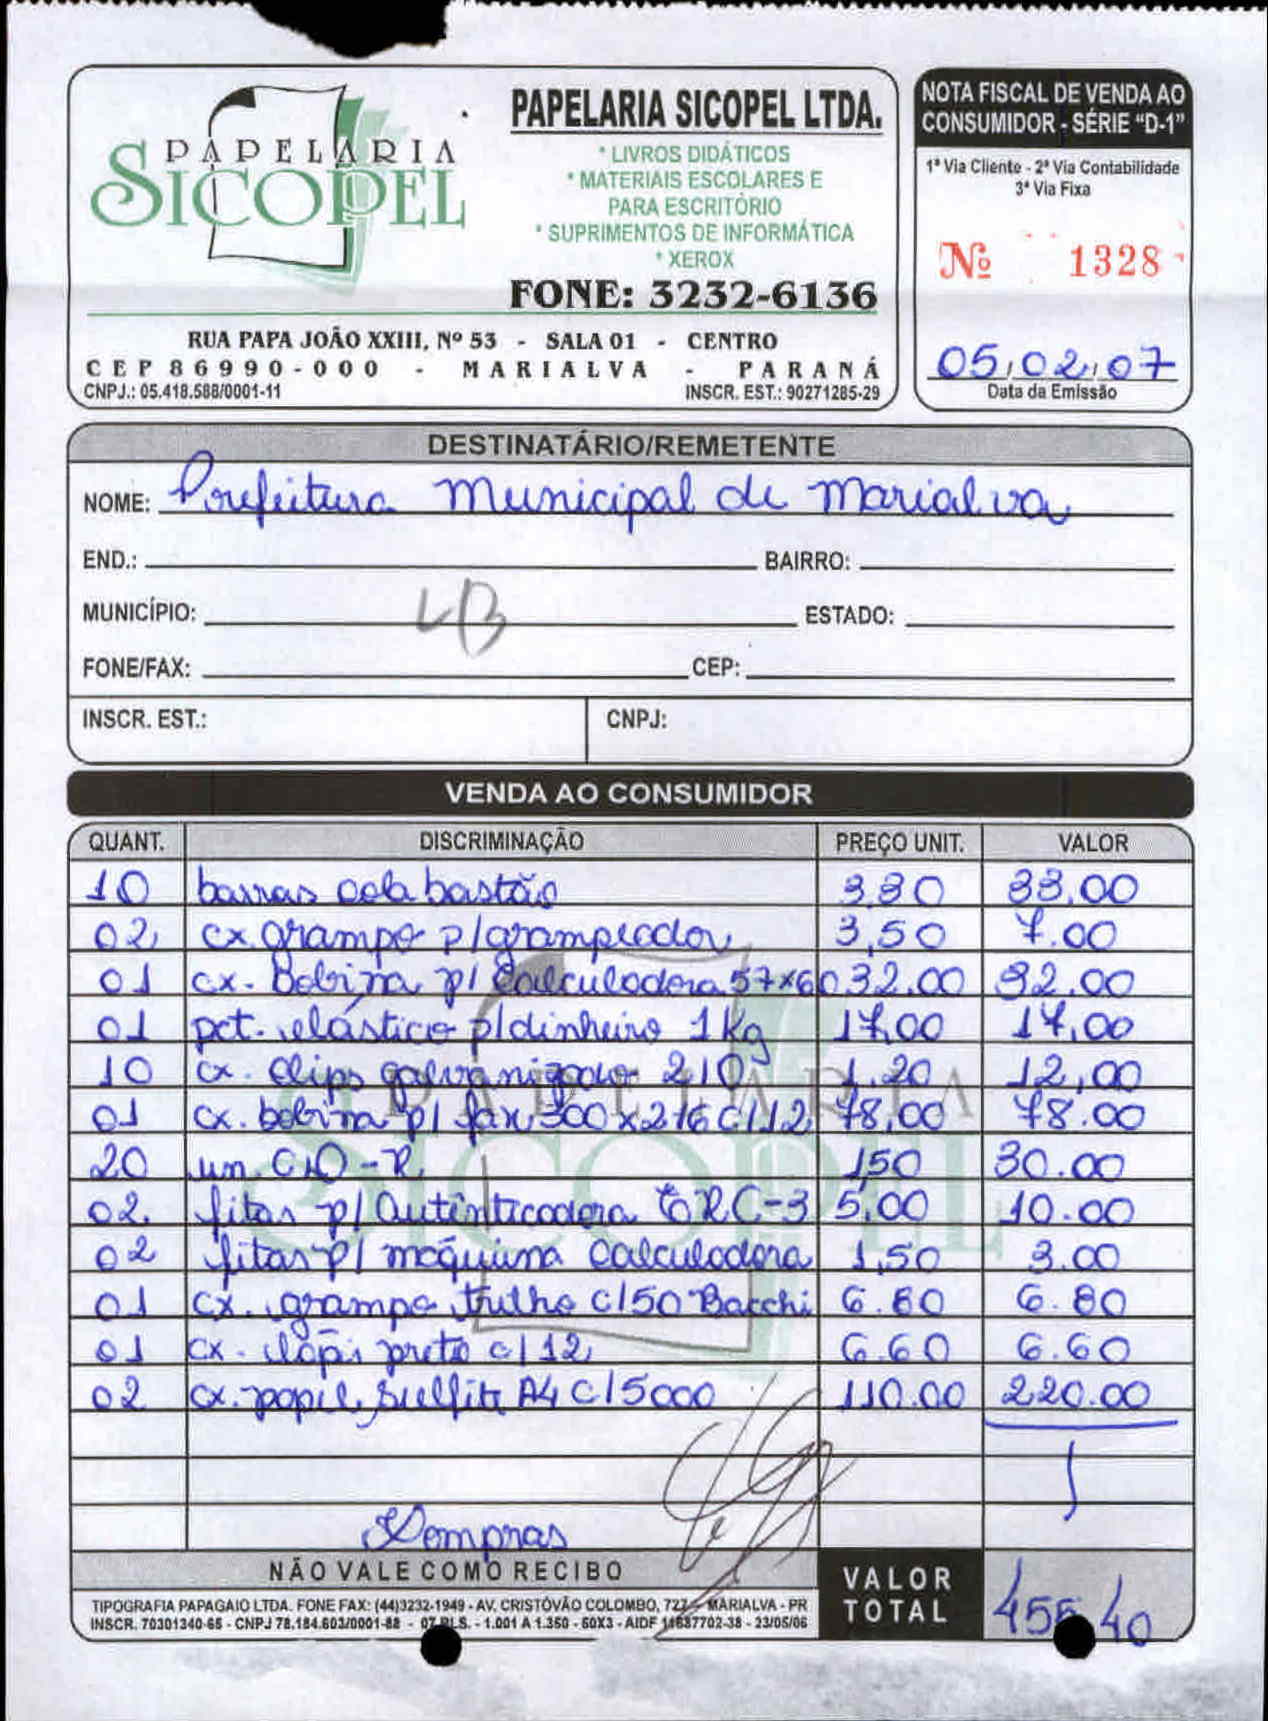 PAPELARIA
SICOPEL
PAPELARIA SICOPEL LTDA.
* LIVROS DIDÁTICOS
* MATERIAIS ESCOLARES E
PARA ESCRITÓRIO
* SUPRIMENTOS DE INFORMÁTICA
* XEROX
FONE: 3232-6136
RUA PAPA JOÃO XXIII, Nº 53 - SALA 01 - CENTRO
CEP 86990-000 - MARIALVA - PARANÁ
CNPJ.: 05.418.588/0001-11 INSCR. EST.: 90271285-29
NOTA FISCAL DE VENDA AO
CONSUMIDOR - SÉRIE “D-1”
1ª Via Cliente - 2ª Via Contabilidade
3ª Via Fixa
Nº 1328
05,02,07
Data da Emissão
DESTINATÁRIO/REMETENTE
NOME: Prefeitura Municipal de Marialva
END.: BAIRRO:
MUNICÍPIO: ESTADO:
FONE/FAX: CEP:
INSCR. EST.: CNPJ:
VENDA AO CONSUMIDOR
QUANT. DISCRIMINAÇÃO PREÇO UNIT. VALOR
10 barras cola bastão 3,30 33,00
02 cx. grampo p/grampeador 3,50 7.00
01 cx. Bobina p/ Calculadora 57x60 32.00 32.00
01 pct. elástico p/dinheiro 1Kg 17,00 17,00
10 cx. clips galvanizado 2/0 1.20 12,00
01 cx. bobina p/ fax 300x216 c/12 78,00 78.00
20 un CD-R 1,50 30.00
02 fitas p/ Autenticadora ERC-3 5,00 10.00
02 fitas p/ máquina Calculadora 1,50 3.00
01 cx. grampo trilho c/50 Bacchi 6.80 6.80
01 cx. lápis preto c/12 6.60 6.60
02 cx. papel sulfite A4 C/5000 110.00 220.00
Compras
NÃO VALE COMO RECIBO
VALOR
TOTAL 455,40
TIPOGRAFIA PAPAGAIO LTDA. FONE FAX: (44)3232-1949 - AV. CRISTÓVÃO COLOMBO, - MARIALVA - PR
INSCR. 70301340-65 - CNPJ 78.184.603/0001-88 - - 1.001 A 1.350 - 50X3 - AIDF - 23/05/06